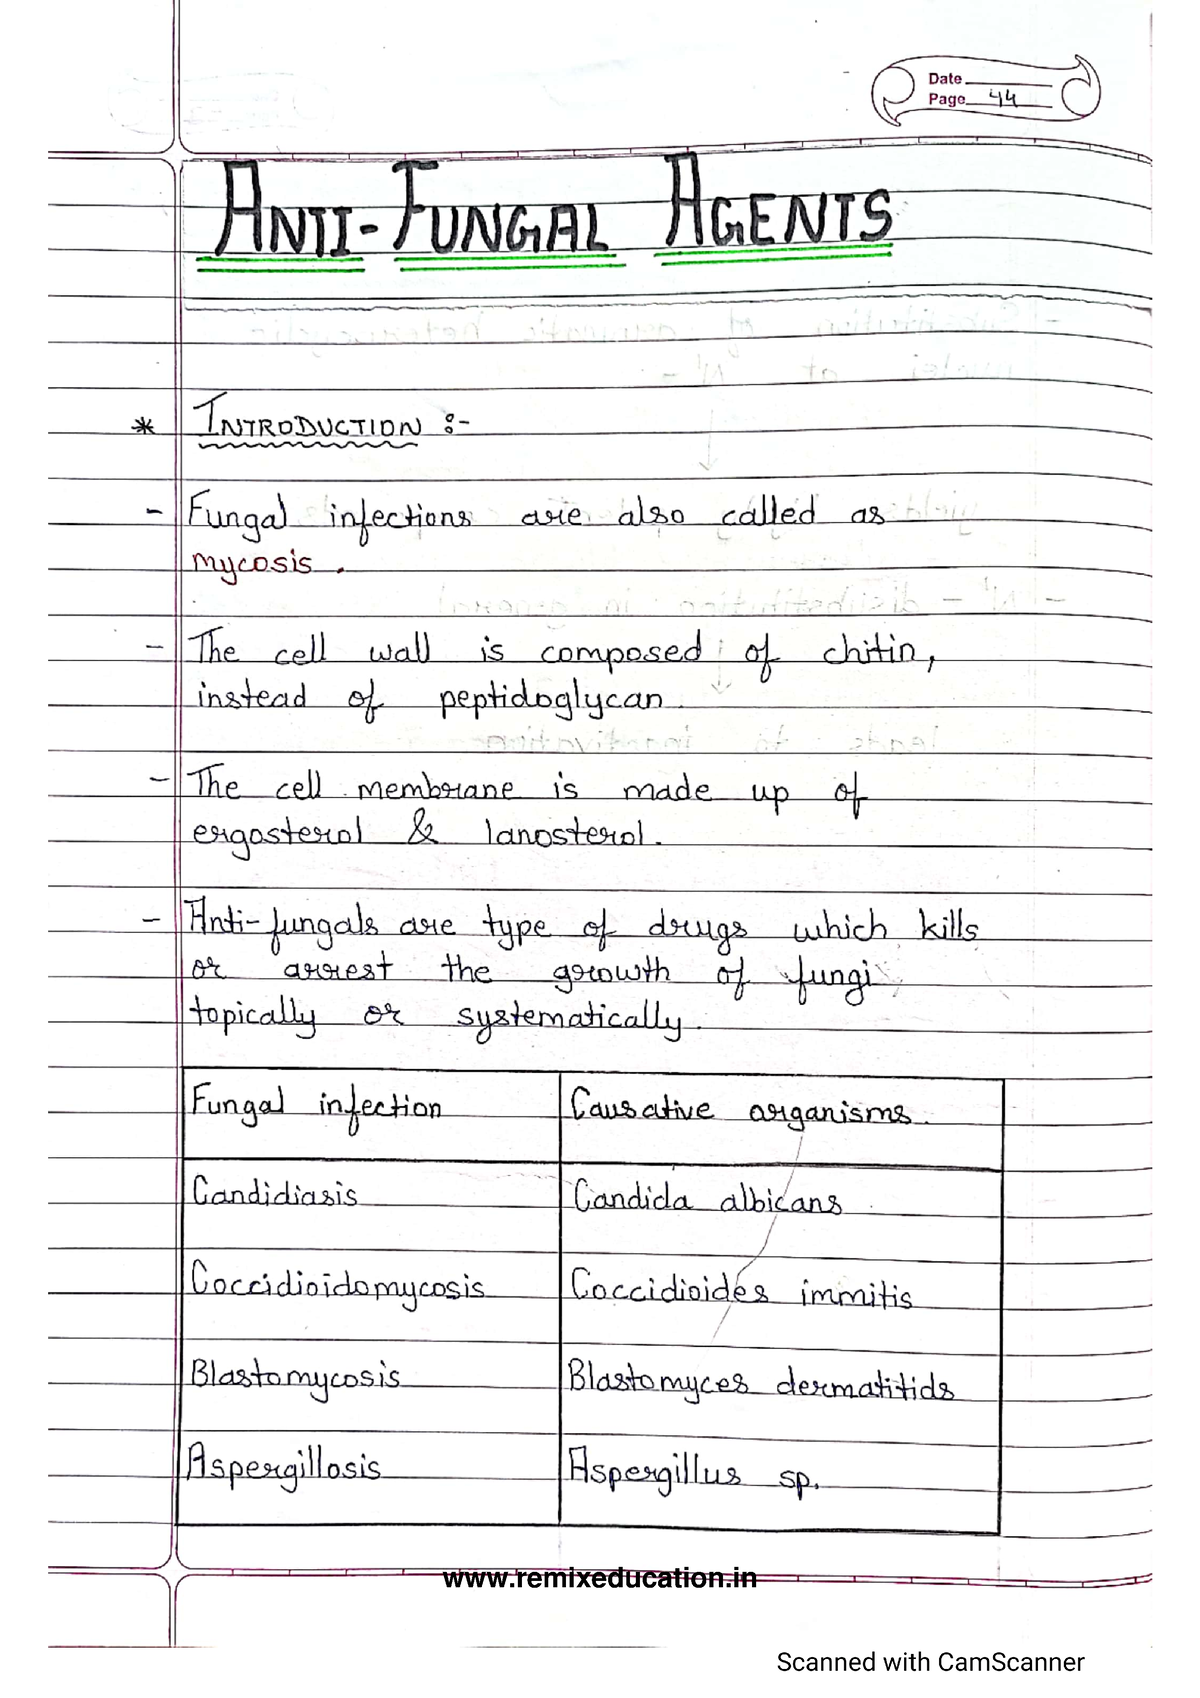 Date
Page 44
ANTI-FUNGAL AGENTS
* INTRODUCTION :-
- Fungal infections are also called as
mycosis.
- The cell wall is composed of chitin,
instead of peptidoglycan
- The cell membrane is made up of
ergosterol & lanosterol.
- Anti-fungals are type of drugs which kills
or arrest the growth of fungi
topically or systematically.
Fungal infection Causative organisms.
Candidiasis Candida albicans
Coccidioidomycosis Coccidioides immitis
Blastomycosis Blastomyces dermatitids
Aspergillosis Aspergillus sp.
www.remixeducation.in
Scanned with CamScanner